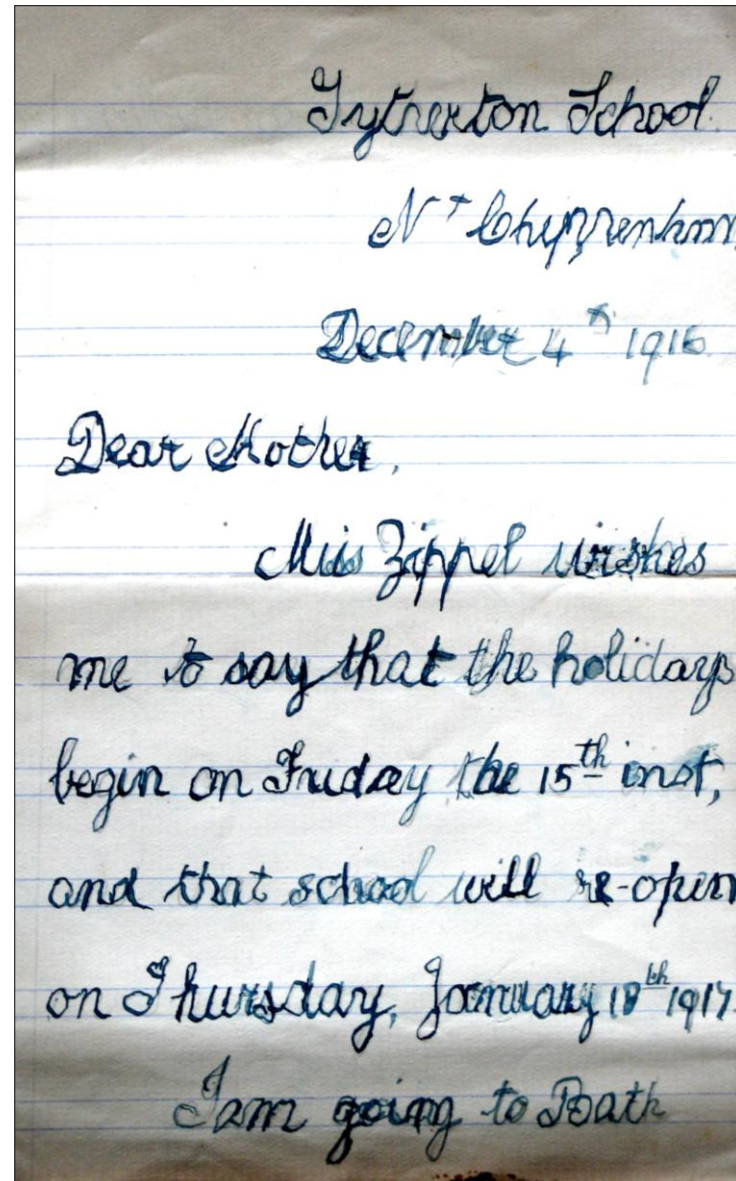 Tytherton School.
Nr Chippenham,
December 4th 1916.
Dear Mother,
Miss Zippel wishes
me to say that the holidays
begin on Friday the 15th inst,
and that school will re-open
on Thursday, January 18th 1917.
I am going to Bath